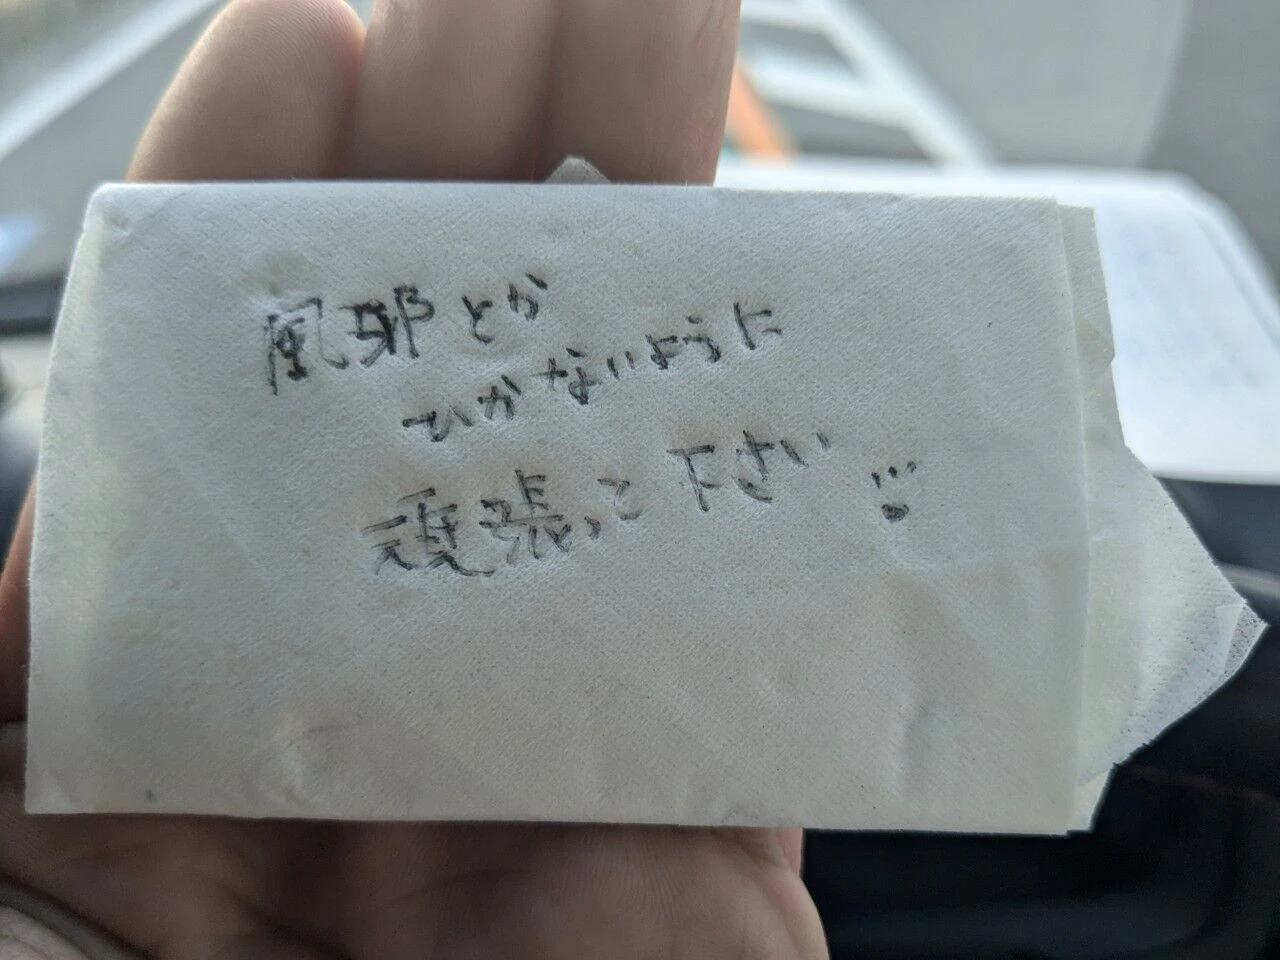 風邪とか
ひかないように
頑張って下さい!!!